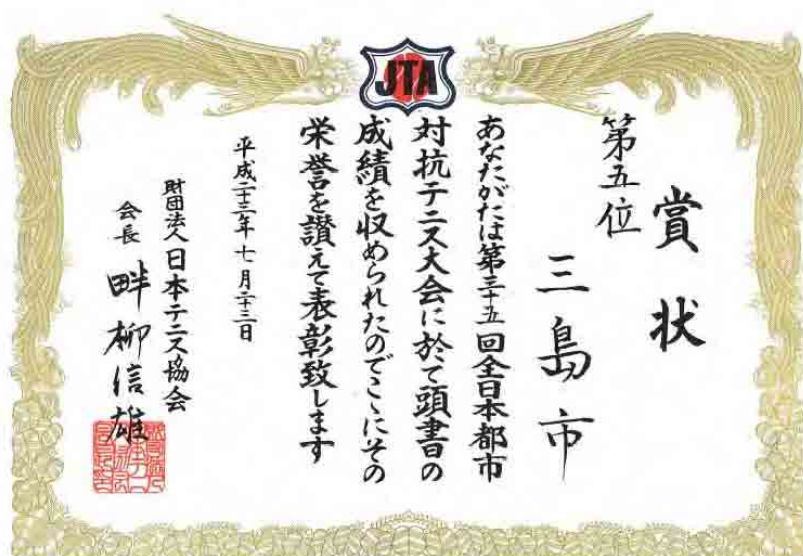 JTA
賞状
第五位
三島市
あなたがたは第三十五回全日本都市
対抗テニス大会に於て頭書の
成績を収められたのでこゝにその
栄誉を讃えて表彰致します
平成二十三年七月二十三日
財団法人日本テニス協会
会長 畔柳信雄